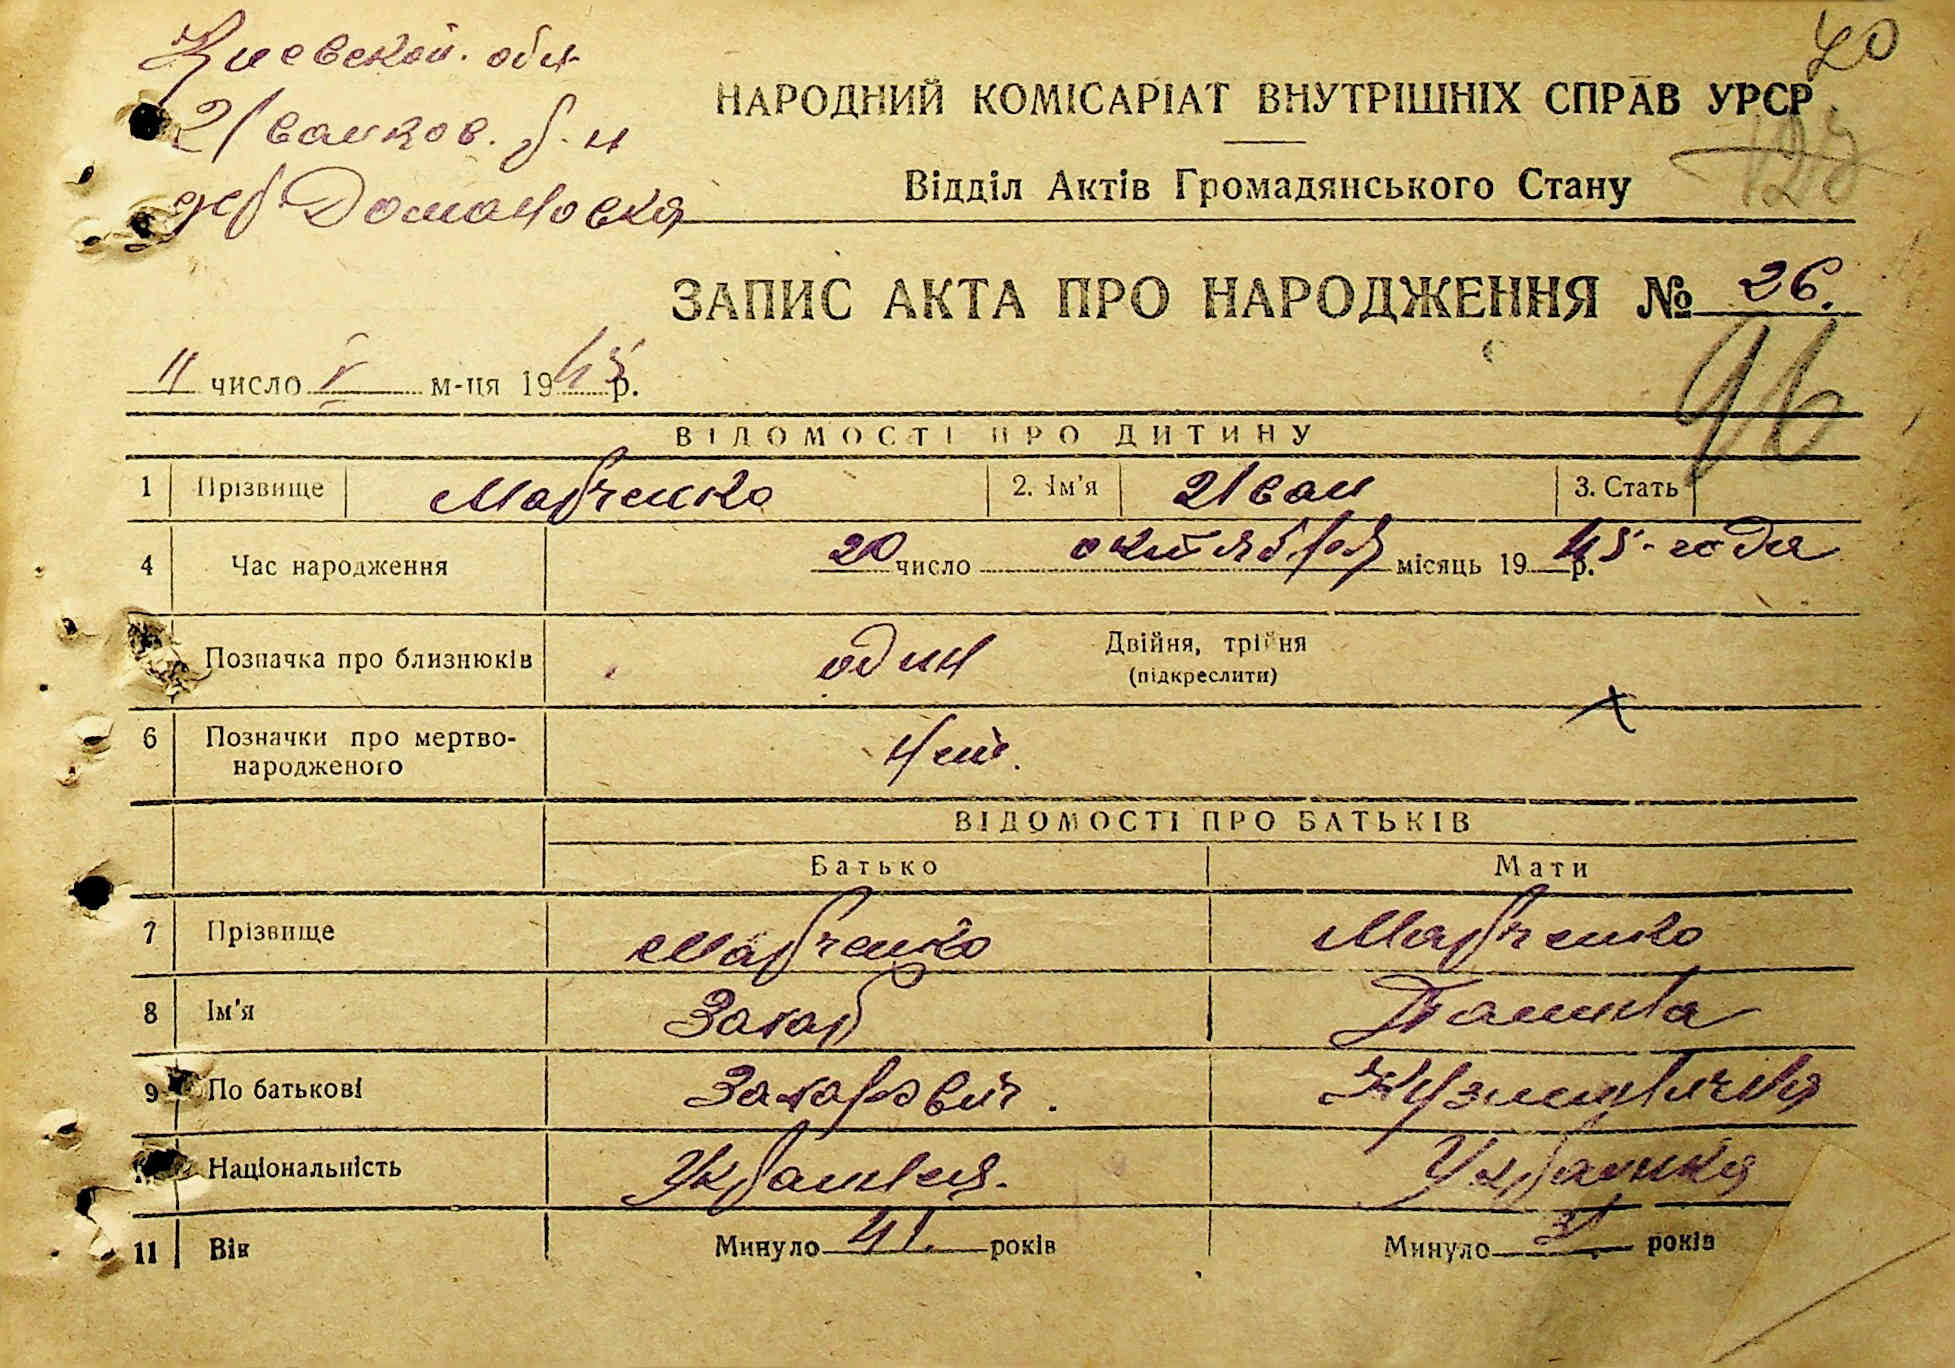 Киевской. обл
Иванков. р-н
дер Домановка
40
НАРОДНИЙ КОМІСАРІАТ ВНУТРІШНІХ СПРАВ УРСР
Відділ Актів Громадянського Стану
ЗАПИС АКТА ПРО НАРОДЖЕННЯ № 26.
96
11 число V м-ця 1945 р.
ВІДОМОСТІ ПРО ДИТИНУ
1 Прізвище Марченко 2. Ім'я Иван 3. Стать
4 Час народження 20 число октября місяць 1945 р. года
Позначка про близнюків один Двійня, трійня
(підкреслити)
6 Позначки про мертво-
народженого нет.
ВІДОМОСТІ ПРО БАТЬКІВ
Батько Мати
7 Прізвище Марченко Марченко
8 Ім'я Захар
9 По батькові Захарович.
Національність Украинец. Украинка
11 Вік Минуло 41. років Минуло років